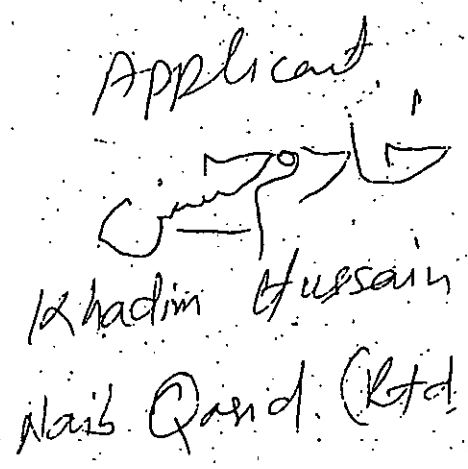 Applicant
خادم حسین
Khadim Hussain
Naib Qasid. (Rtd